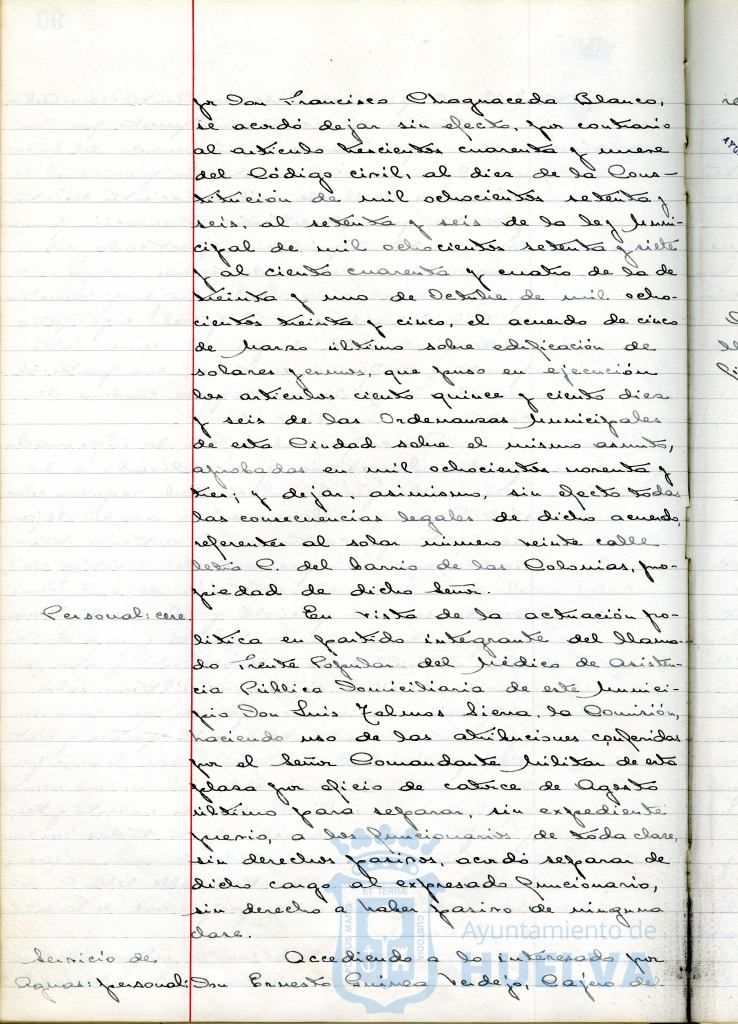 por Don Francisco Chaguaceda Blanco,
se acordó dejar sin efecto, por contrario
al artículo trescientos cuarenta y nueve
del Código civil, al diez de la Cons-
titución de mil ochocientos setenta y
seis, al setenta y seis de la ley Muni-
cipal de mil ochocientos setenta y siete
y al ciento cuarenta y cuatro de la de
treinta y uno de Octubre de mil ocho-
cientos treinta y cinco, el acuerdo de cinco
de Marzo último sobre edificación de
solares yermos, que puso en ejecución
los artículos ciento quince y ciento diez
y seis de las Ordenanzas Municipales
de esta Ciudad sobre el mismo asunto,
aprobadas en mil ochocientos noventa y
tres; y dejar, asimismo, sin efecto todas
las consecuencias legales de dicho acuerdo,
referentes al solar número veinte calle
letra C. del barrio de las Colonias, pro-
piedad de dicho Señor.
Personal: cese. En vista de la actuación po-
lítica en partido integrante del llama-
do Frente Popular del Médico de Asisten-
cia Pública Domiciliaria de este Munici-
pio Don Luis Sierra, la Comisión,
haciendo uso de las atribuciones conferidas
por el Señor Comandante Militar de esta
plaza por oficio de catorce de Agosto
último para separar, sin expediente
previo, a los funcionarios de toda clase,
sin derechos pasivos, acordó separar de
dicho cargo al expresado funcionario,
sin derecho a haber pasivo de ninguna
clase.
Servicio de Accediendo a lo interesado por
Aguas: personal: Don Ernesto Guinea Verdejo, Cajero del
Ayuntamiento de
HUELVA
PORTUS MARIS ET TERRAE CUSTODIA